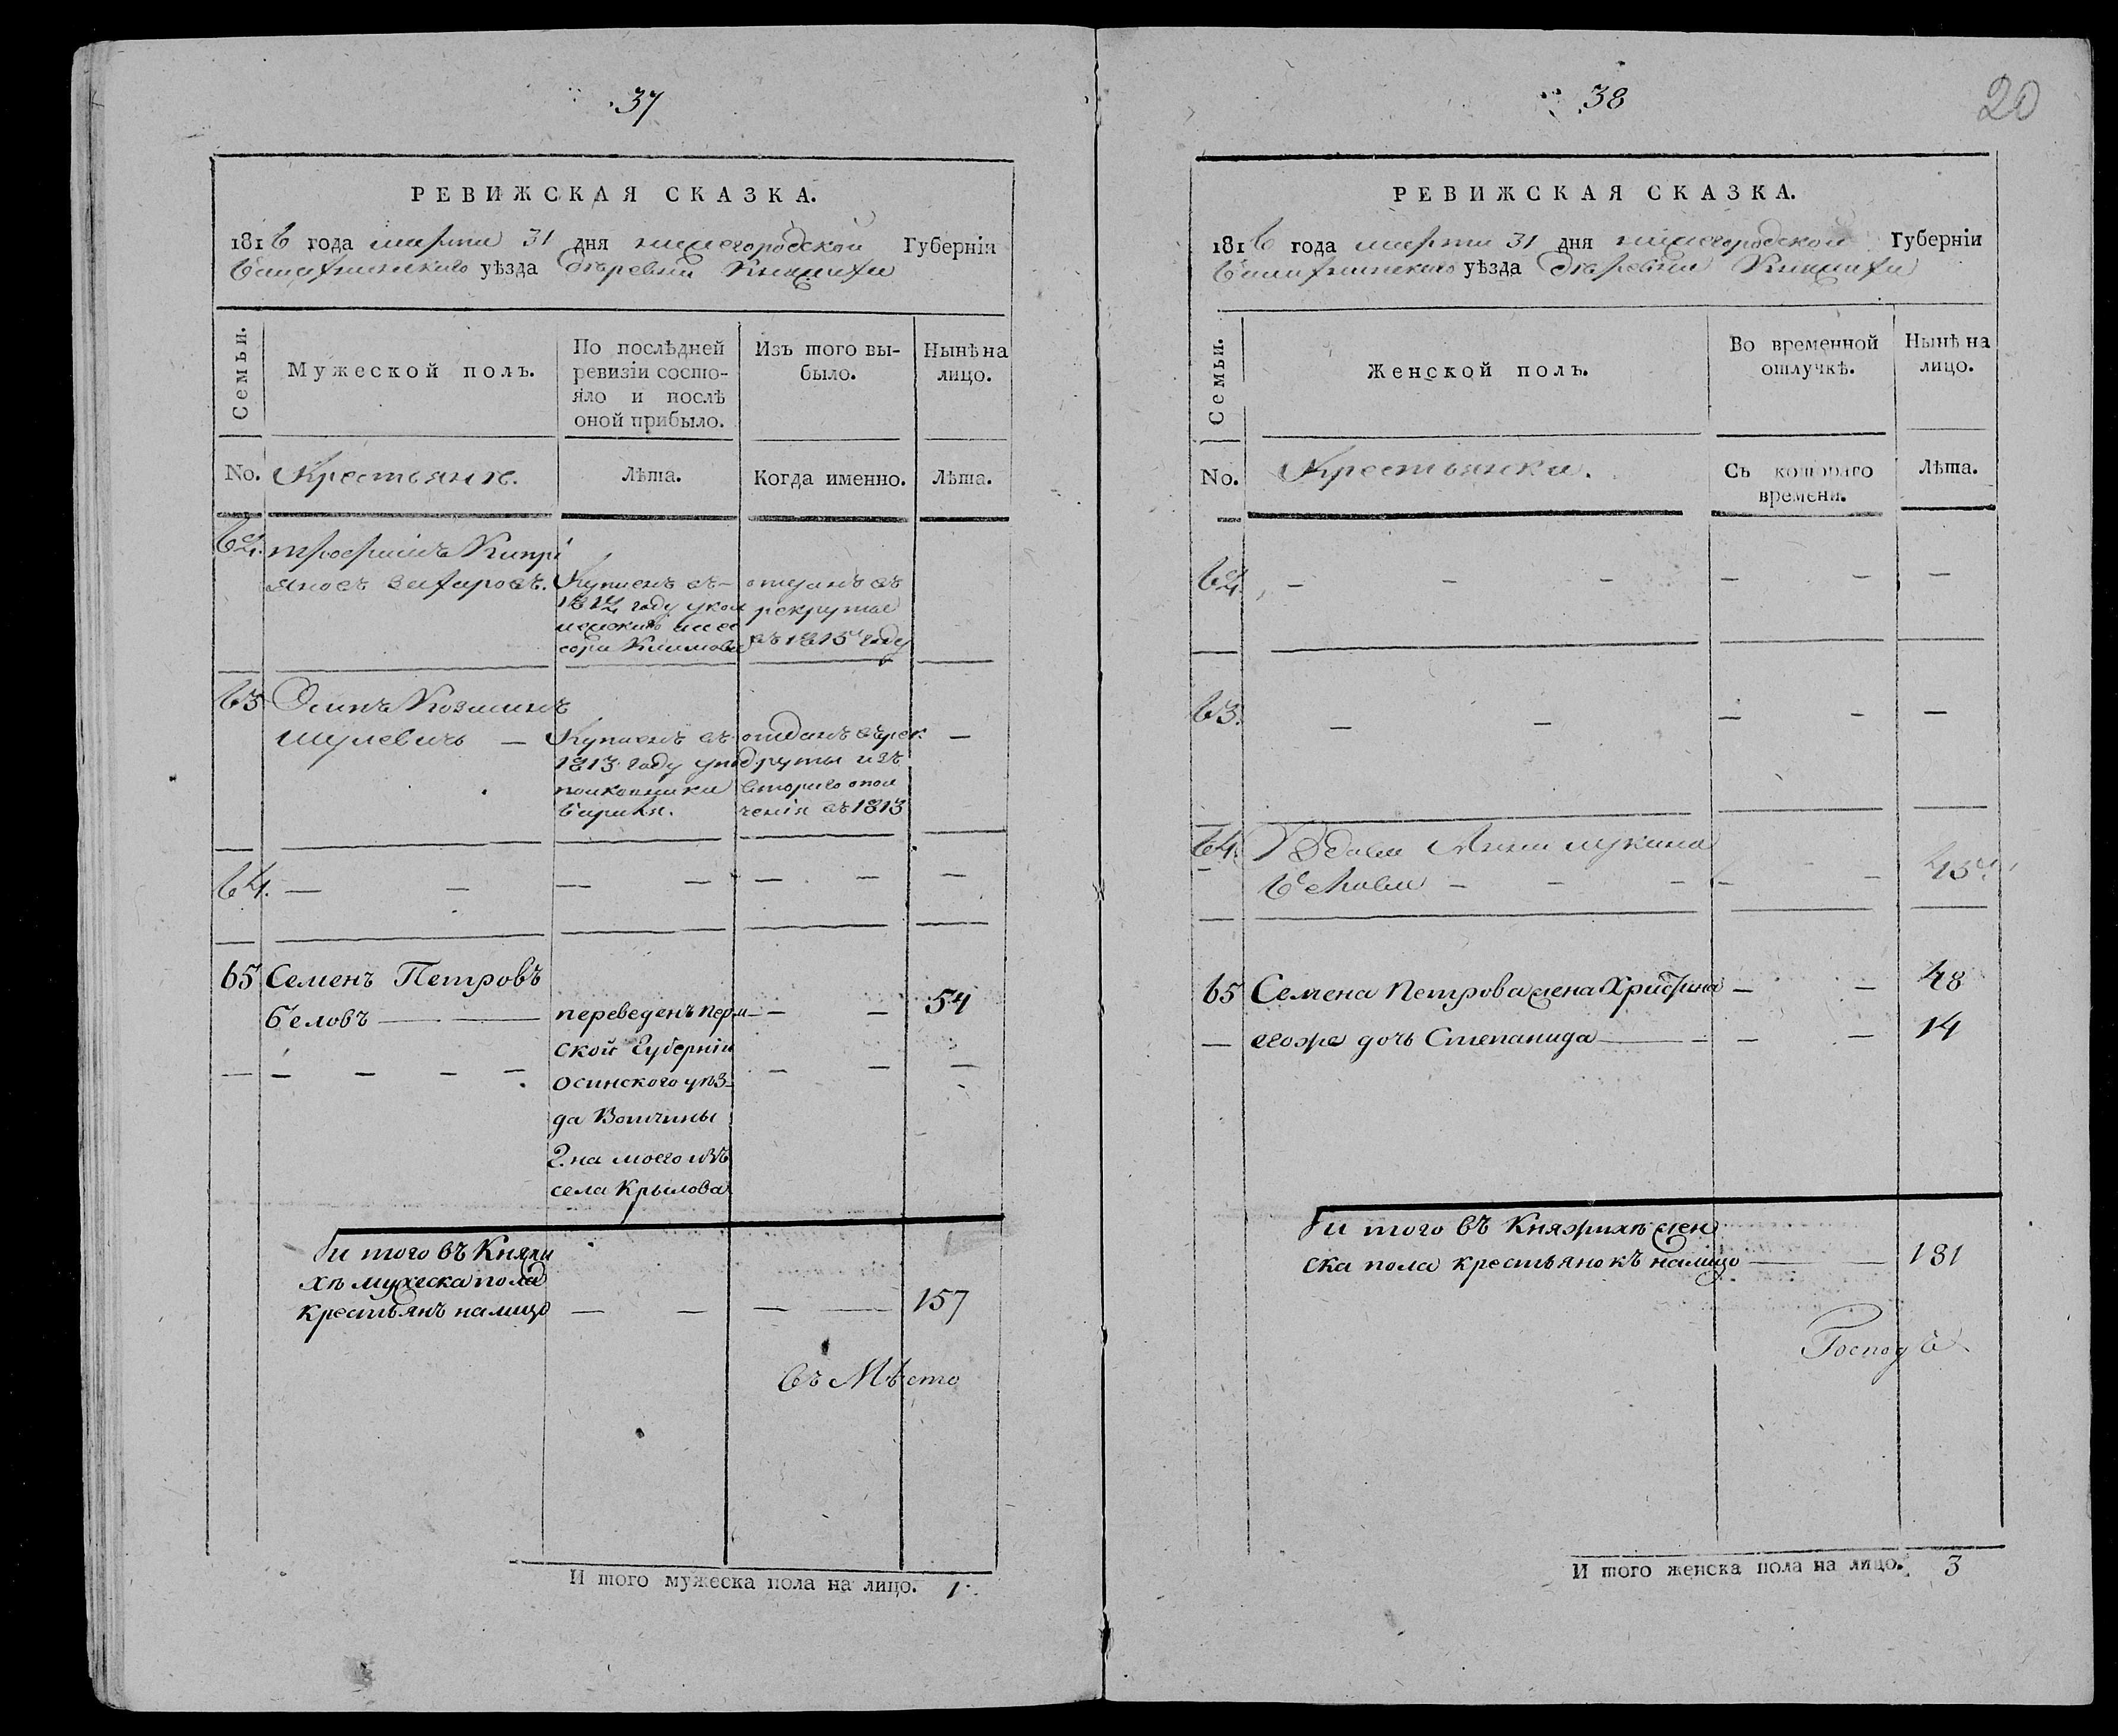 37
РЕВИЖСКАЯ СКАЗКА.
1816 года марта 31 дня нижегородской Губерніи
балахнинскаго уѣзда деревни Княжихи
Семьи.
Мужеской полъ.
По послѣдней
ревизіи состо-
яло и послѣ
оной прибыло.
Изъ того вы-
было.
Нынѣ на
лицо.
No. Крестьяне. Лѣта. Когда именно. Лѣта.
62. трофимъ Кипрі
яновъ захаровъ. Купленъ въ отданъ въ
1812 году у кол рекруты
лежскаго ассе въ 1813 году
сора Климова
63 Осипъ Козминъ
шулевичь — Купленъ въ отданъ въ рек —
1813 году у подруты изъ
полковника втораго опол
барина. ченія въ 1813
64. — — — — — — —
65 Семенъ Петровъ
беловъ — — переведенъ Перм — — 54
ской Губерніи
— — — — — осинского уѣз — — —
да Вотчины
Г.на моего изъ
села Крылова
и того въ Княжи
хѣ мужеска пола
крестьянъ налицо — — — — 157
въ Мѣсто
И того мужеска пола на лицо. 1.
38
20
РЕВИЖСКАЯ СКАЗКА.
1816 года марта 31 дня нижегородской Губерніи
балахнинскаго уѣзда деревни Княжихи
Семьи.
Женской полъ.
Во временной
отлучкѣ.
Нынѣ на
лицо.
No. Крестьянки. Съ котораго
времени. Лѣта.
62. — — — — — —
63. — — — — —
64. Вдова Анна лукина
белова — — — — — 45.
65 Семена Петрова жена Христина — — 48
— егоже дочь Степанида — — — — 14
и того въ Княжихѣ жен
ска пола крестьянокъ налицо — — 181
Господъ
И того женска пола на лицо. 3